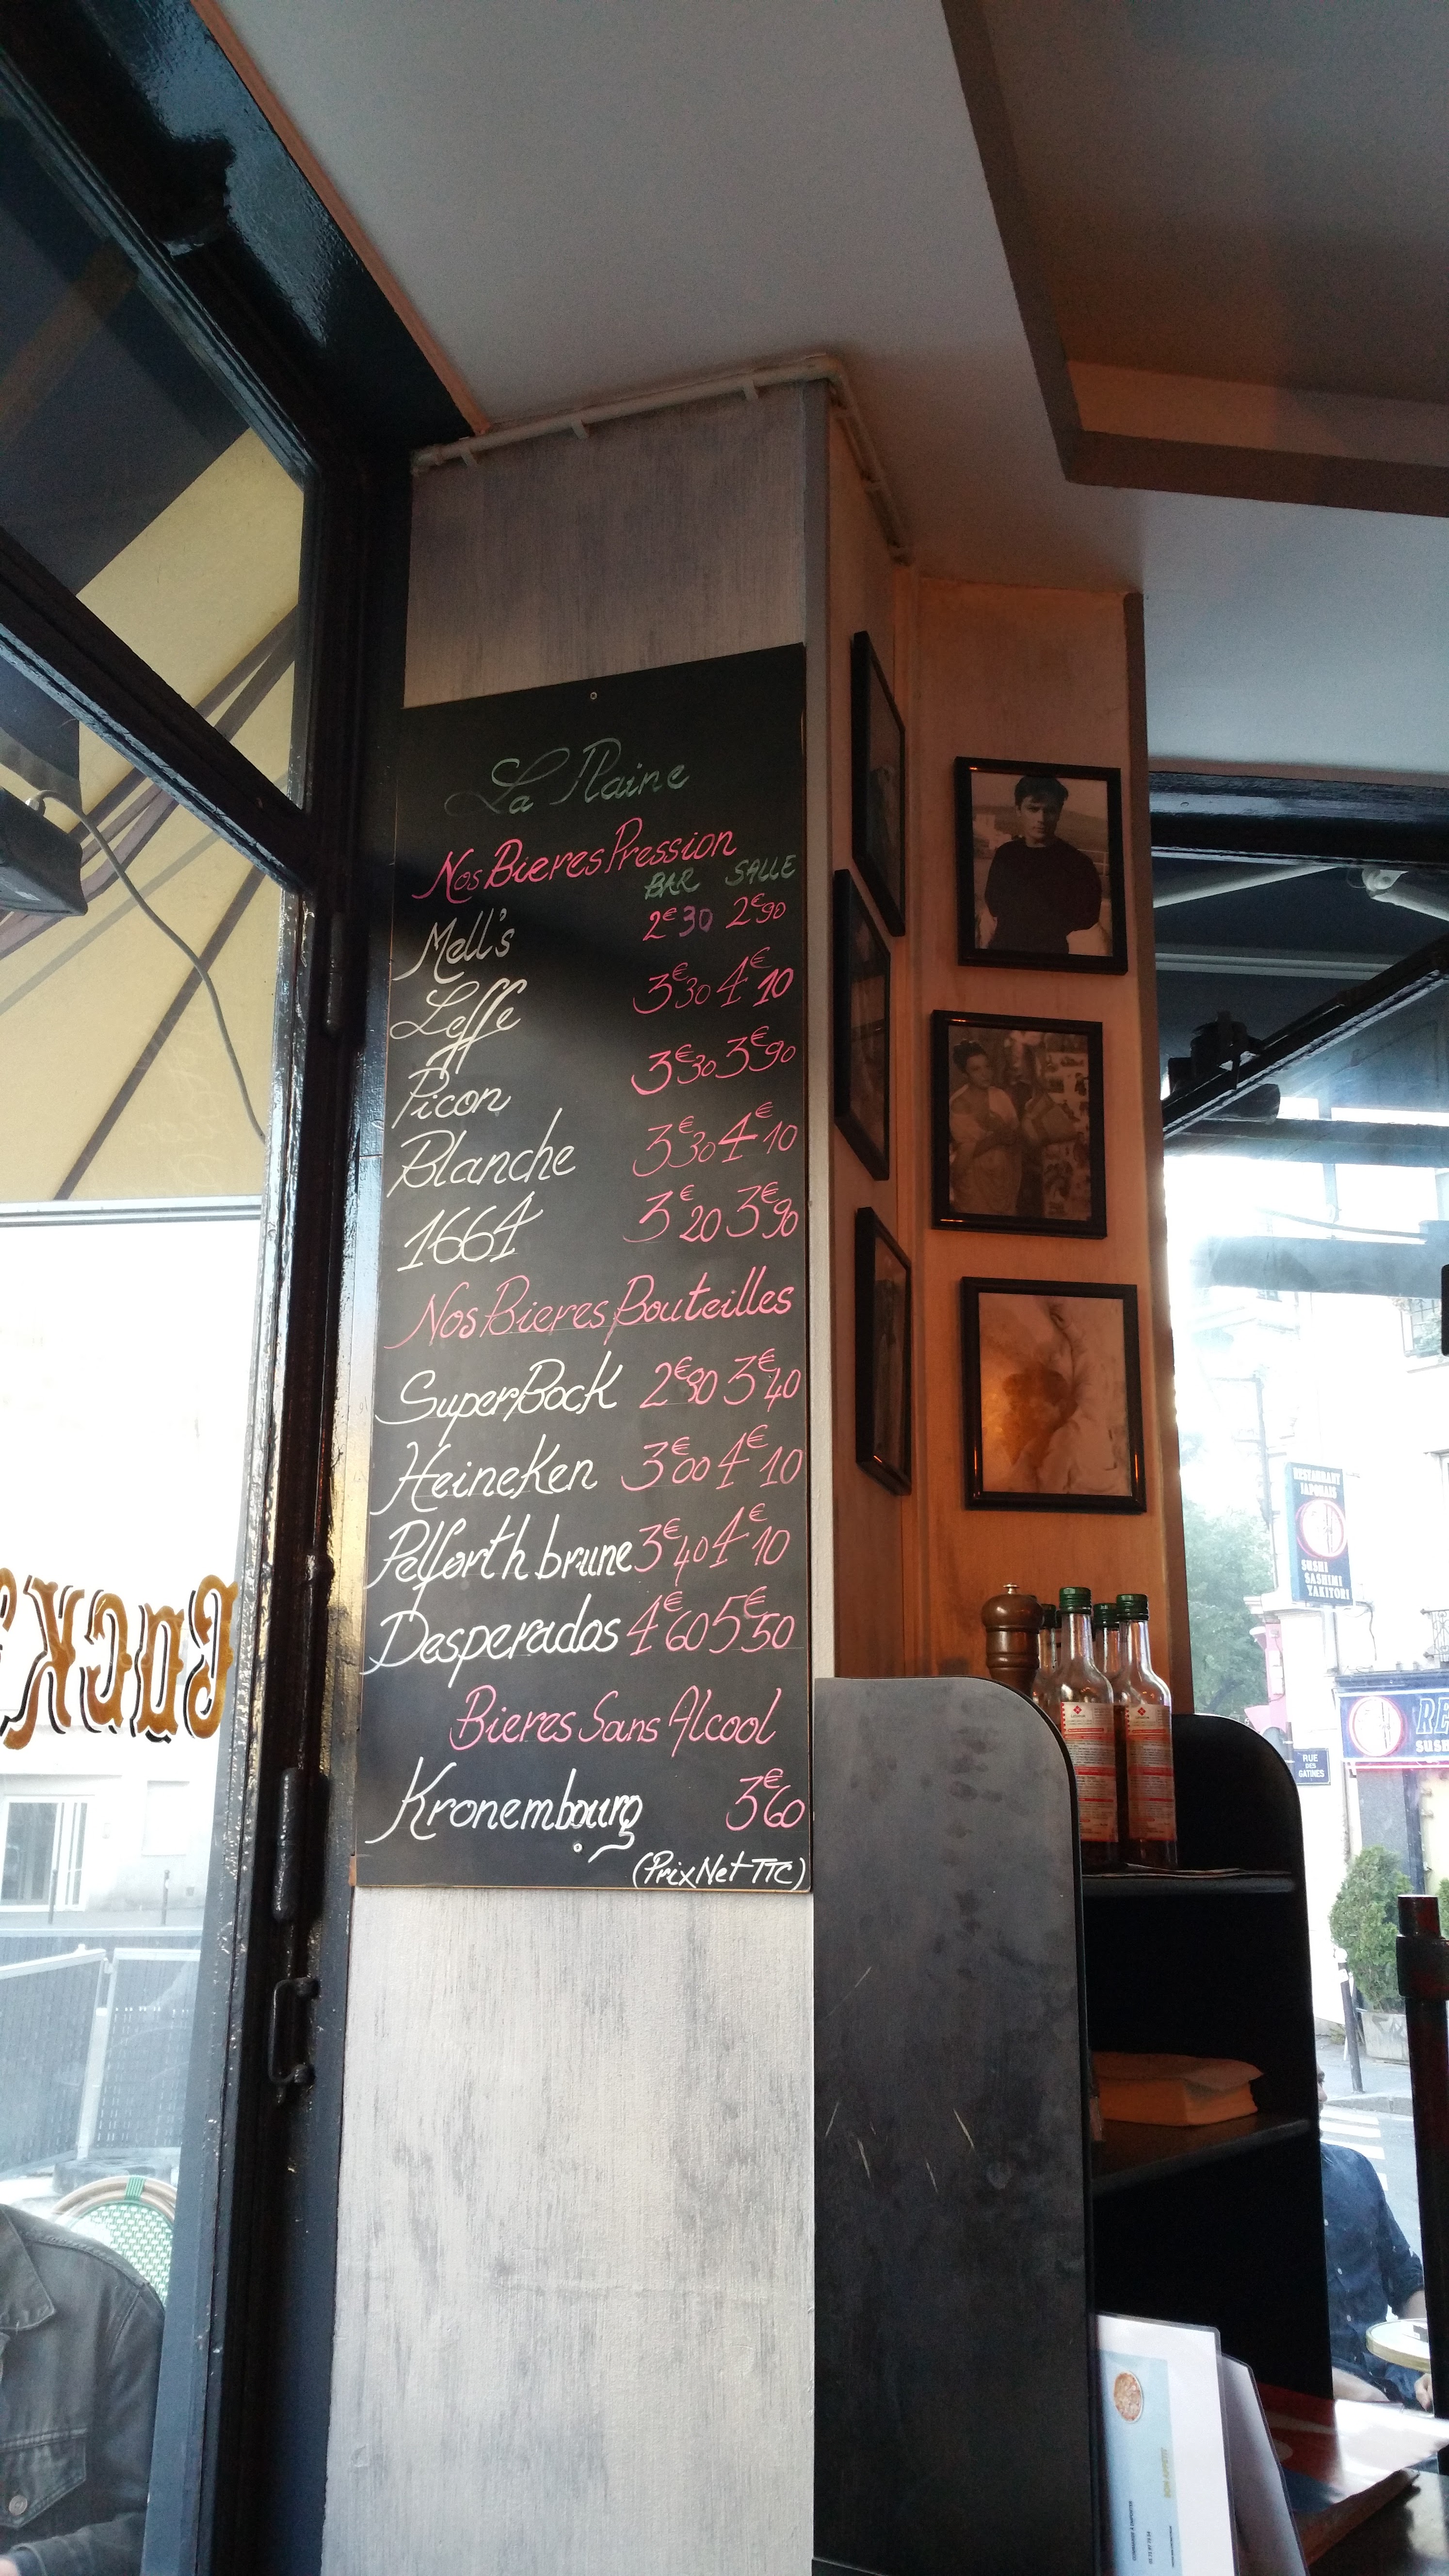 La Plaine
Nos Bieres Pression
BAR SALLE
Mell's 2€30 2€90
Leffe 3€30 4€10
Picon 3€30 3€90
Blanche 3€30 4€10
1664 3€20 3€90
Nos Bieres Bouteilles
SuperBock 2€90 3€40
Heineken 3€00 4€10
Pelforth brune 3€40 4€10
Desperados 4€60 5€50
Bieres Sans Alcool
Kronembourg 3€60
(Prix Net TTC)
RESTAURANT
JAPONAIS
SUSHI
SASHIMI
YAKITORI
RUE
DES
GATINES
BON APPETIT